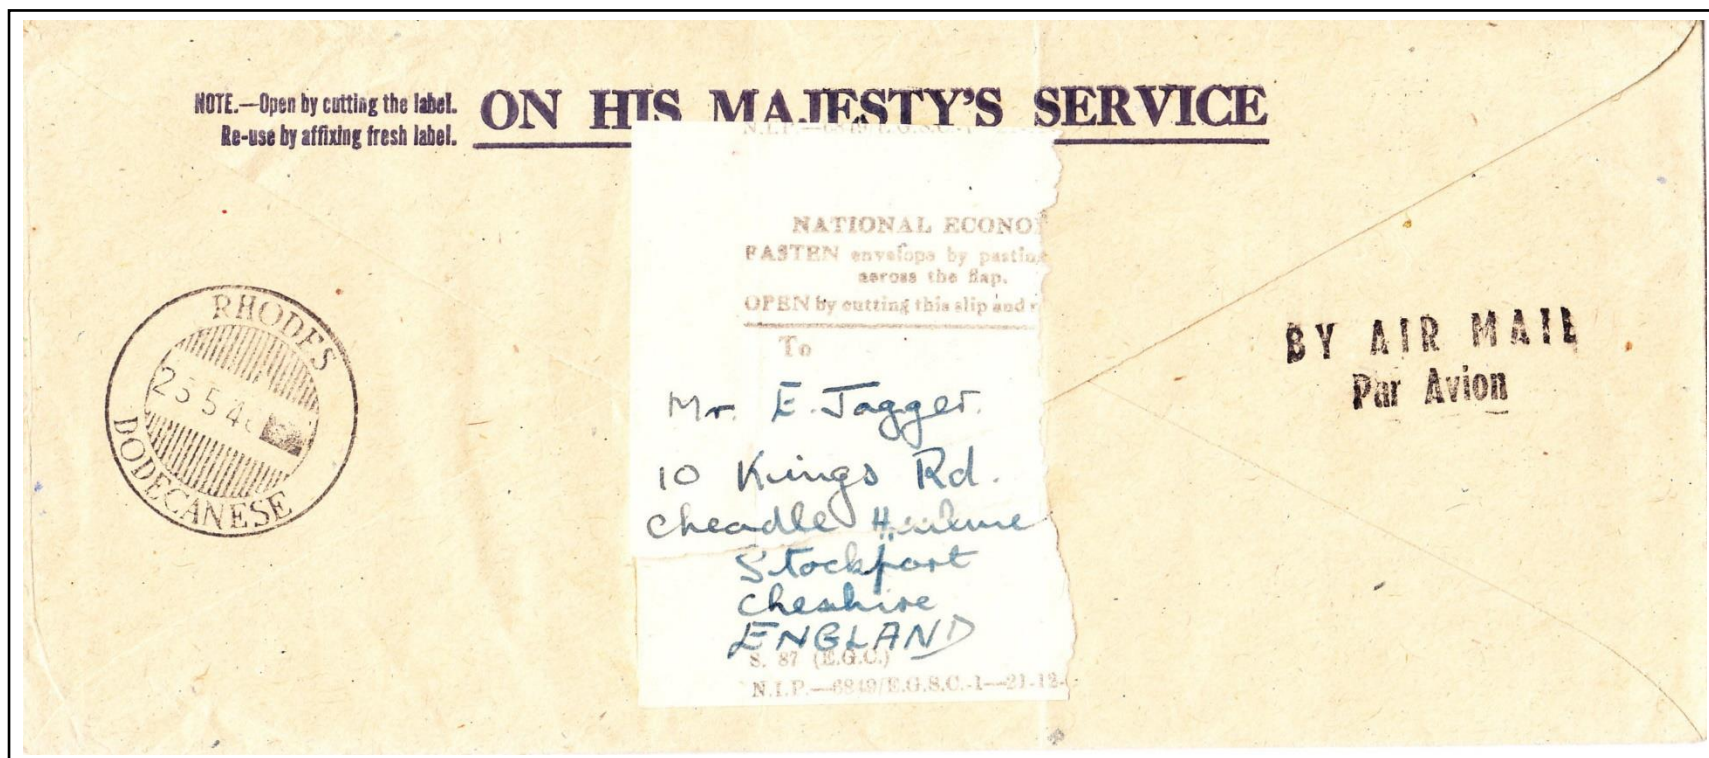 NOTE.—Open by cutting the label.
Re-use by affixing fresh label.
ON HIS MAJESTY'S SERVICE
NATIONAL ECONO
FASTEN envelope by pasting
across the flap.
OPEN by cutting this slip and
To
Mr. E. Jagger.
10 Kings Rd.
Cheadle Hulme
Stockport
Cheshire
ENGLAND
S. 87 (E.G.C.)
N.I.P.—6849/E.G.S.C.-1—21-12-
RHODES
DODECANESE
BY AIR MAIL
Par Avion